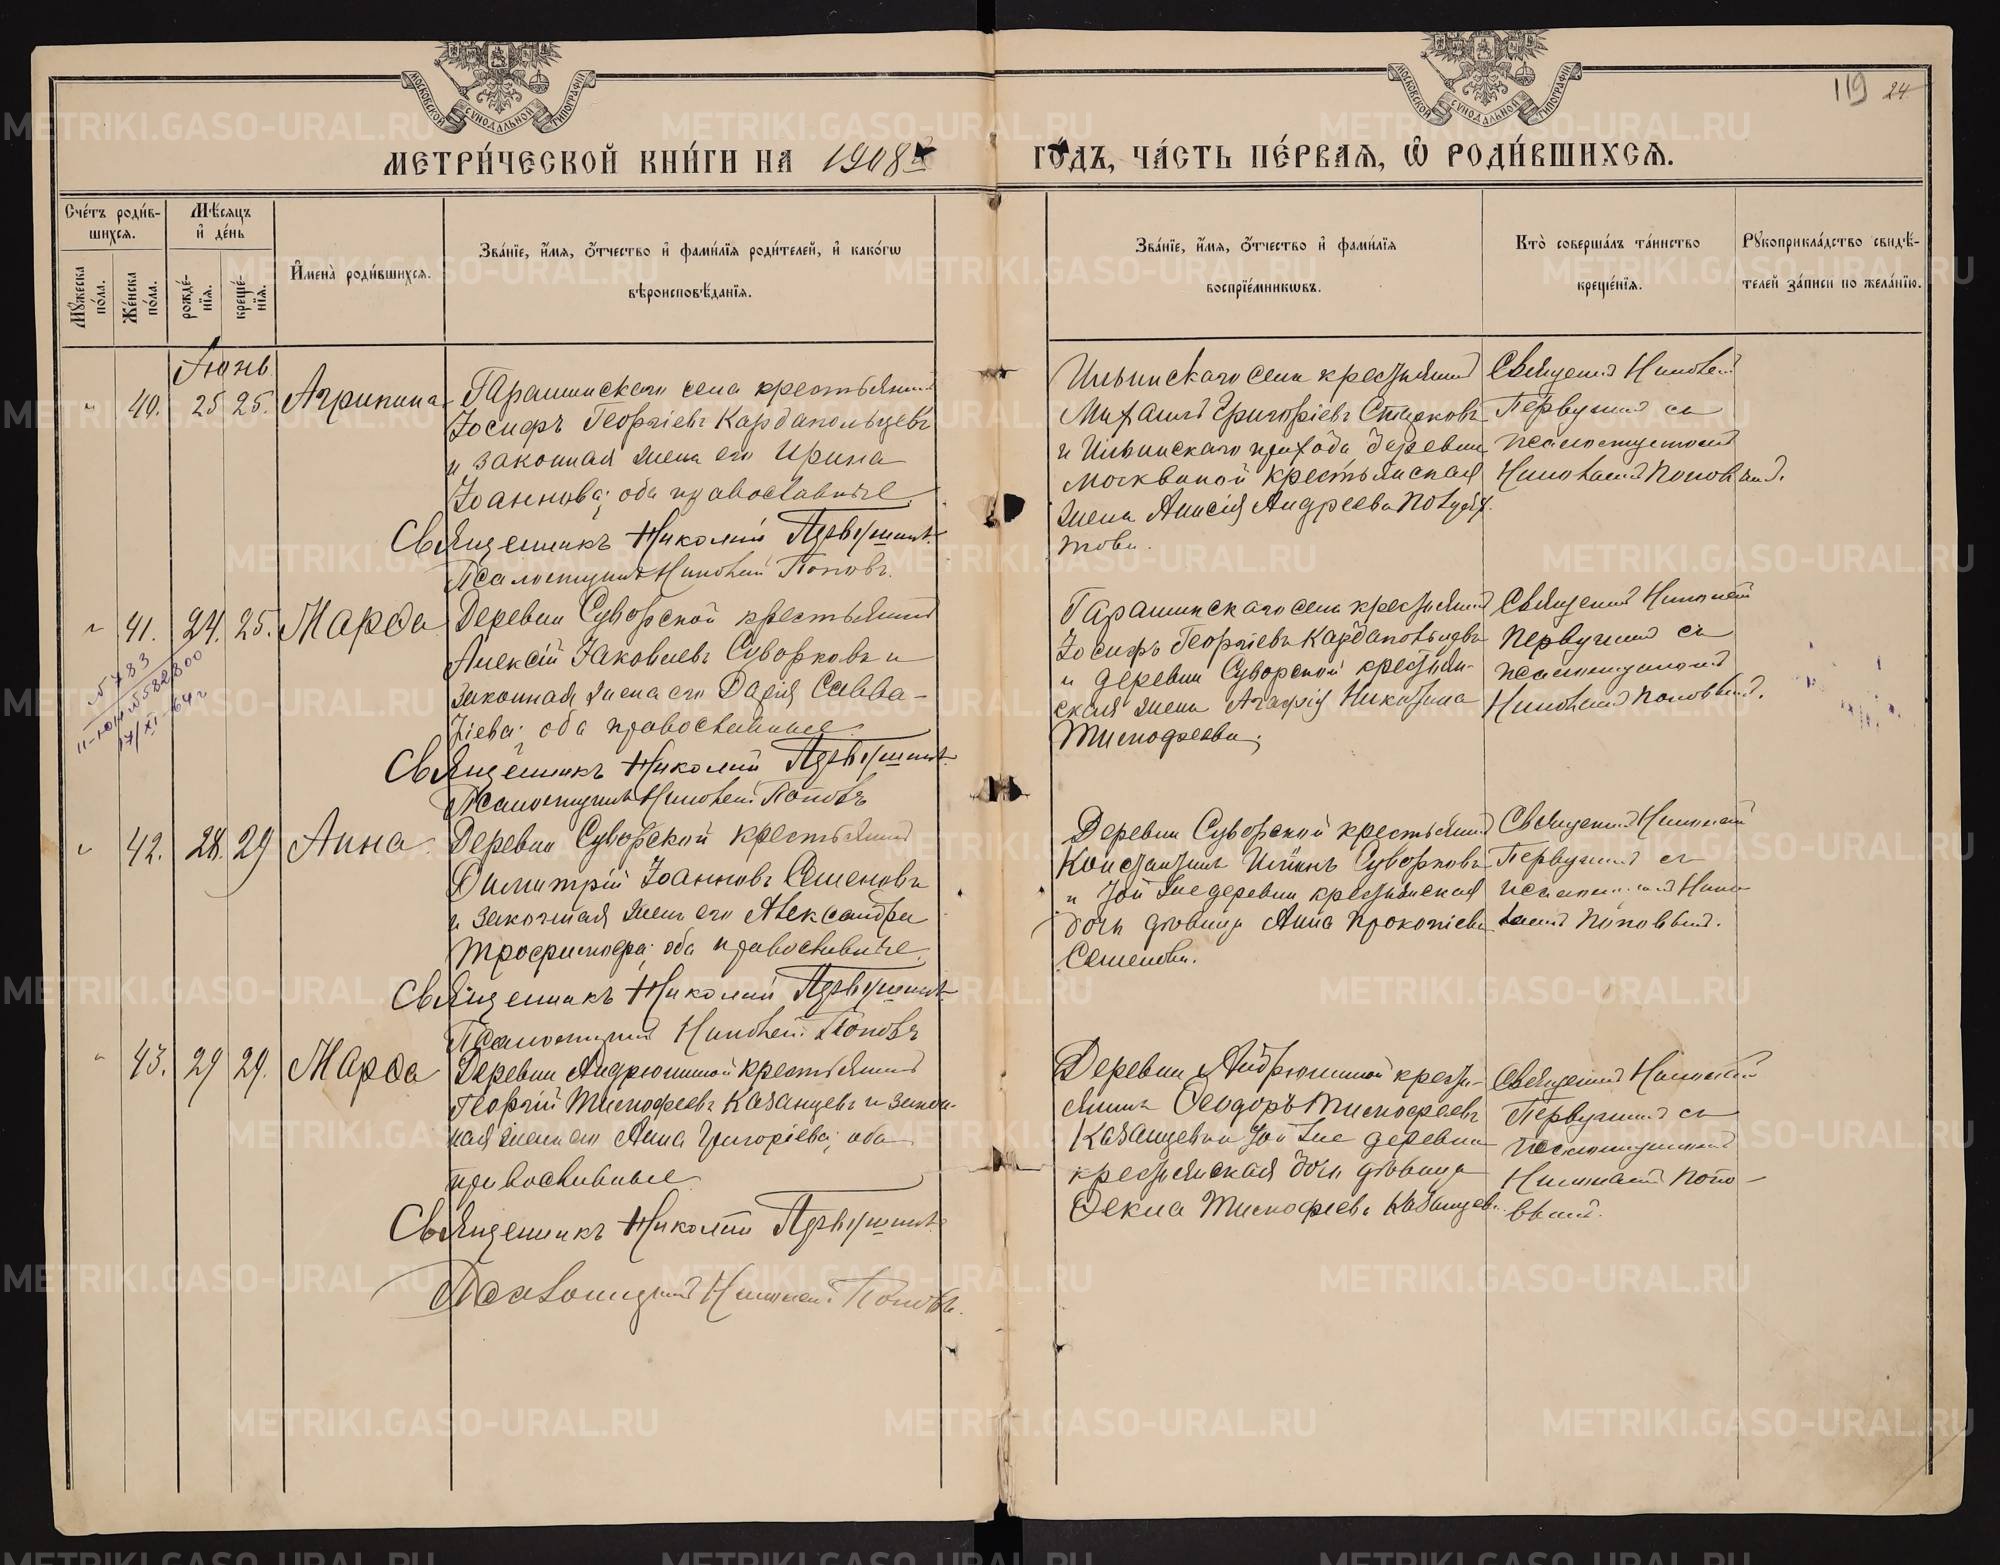 МОСКОВСКОЙ СУНОДАЛЬНОЙ ТИПОГРАФІИ
МОСКОВСКОЙ СУНОДАЛЬНОЙ ТИПОГРАФІИ
119 24
МЕТРИ́ЧЕСКОЙ КНИ́ГИ НА 1908й
ГО́ДЪ, ЧА́СТЬ ПЕ́РВАЯ, Ѽ РОДИ́ВШИХСѦ.
Сче́тъ роди́в-
шихсѧ.
Мꙋжеска по́ла.
Же́нска по́ла.
Мѣ́сѧцъ
и҆ де́нь
рожде́-нїѧ.
креще́-нїѧ.
И҆мена̀ роди́вшихсѧ.
Зва́нїе, и҆́мѧ, ѻ҆́тчество и҆ фами́лїѧ роди́телей, и҆ како́гѡ
вѣроисповѣ́данїѧ.
Зва́нїе, и҆́мѧ, ѻ҆́тчество и҆ фами́лїѧ
воспрїе́мникѡвъ.
Кто̀ соверша́лъ та́инство
креще́нїѧ.
Рꙋкоприкла́дство свидѣ́-
телей за́писи по жела́нїю.
Іюнь
40. 25 25. Агрипина
Гарашинскаго села крестьянинъ
Іосифъ Георгіевъ Кардапольцевъ
и законная жена его Ирина
Іоаннова; оба православные.
Священникъ Николай Первушинъ
Псаломщикъ Николай Поповъ.
Ильинскаго села крестьянинъ
Михаилъ Григоріевъ
и Ильинскаго прихода деревни
Москвиной крестьянская
жена Анисія Андреева
това.
Священникъ Николай
Первушинъ съ
псаломщикомъ
Николаемъ Поповымъ.
41. 24. 25. Марѳа
Деревни Суворской крестьянинъ
Алексій Іаковлевъ Суворковъ и
законная жена его Дарія Савва-
тіева; оба православные.
Священникъ Николай Первушинъ
Псаломщикъ Николай Поповъ
Гарашинскаго села крестьянинъ
Іосифъ Георгіевъ Кардапольцевъ
и деревни Суворской крестьян-
ская жена Агафія Никитина
Тимофеева;
Священникъ Николай
Первушинъ съ
псаломщикомъ
Николаемъ Поповымъ.
17/XI 64 г
42. 28. 29 Анна
Деревни Суворской крестьянинъ
Димитрій Іоанновъ Семеновъ
и законная жена его Александра
Трофимова; оба православные.
Священникъ Николай Первушинъ
Псаломщикъ Николай Поповъ
Деревни Суворской крестьянинъ
Константинъ Суворковъ
и той же деревни крестьянская
дочь дѣвица Анна Прокопіева
Семенова.
Священникъ Николай
Первушинъ съ
псаломщикомъ Нико
лаемъ Поповымъ.
43. 29 29. Марѳа
Деревни Андрюшиной крестьянинъ
Георгій Тимофеевъ Казанцевъ и закон-
ная жена его Анна Григоріева; оба
православные
Священникъ Николай Первушинъ
Псаломщикъ Николай Поповъ.
Деревни Андрюшиной кресть-
янинъ Ѳеодоръ Тимофеевъ
Казанцевъ и той же деревни
крестьянская дочь дѣвица
Ѳекла Тимофеева Казанцева
Священникъ Николай
Первушинъ съ
псаломщикомъ
Николаемъ Попо-
вымъ.
METRIKI.GASO-URAL.RU